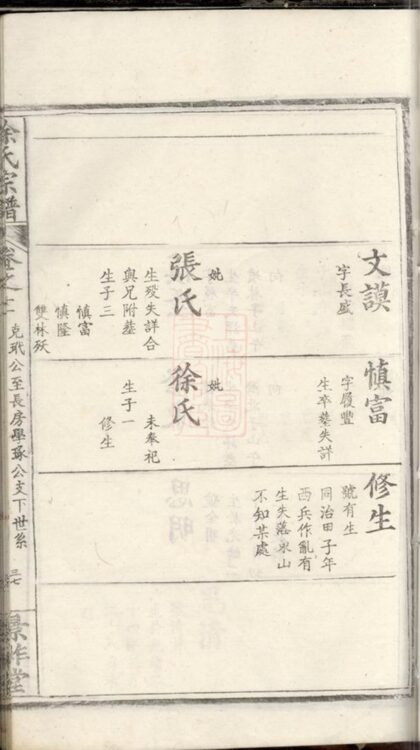 文謨
字長盛
妣
張氏
生殁失詳合
與兄附塟
生子三
慎富
慎隆
雙林殀
慎富
字履豐
生卒塟失詳
妣
徐氏
未奉祀
生子一
修生
修生
號有生
同治田子年
西兵作亂有
生失落氷山
不知某處
徐氏宗譜
卷之二
克玳公至長房學琢公支下世系
景胙堂